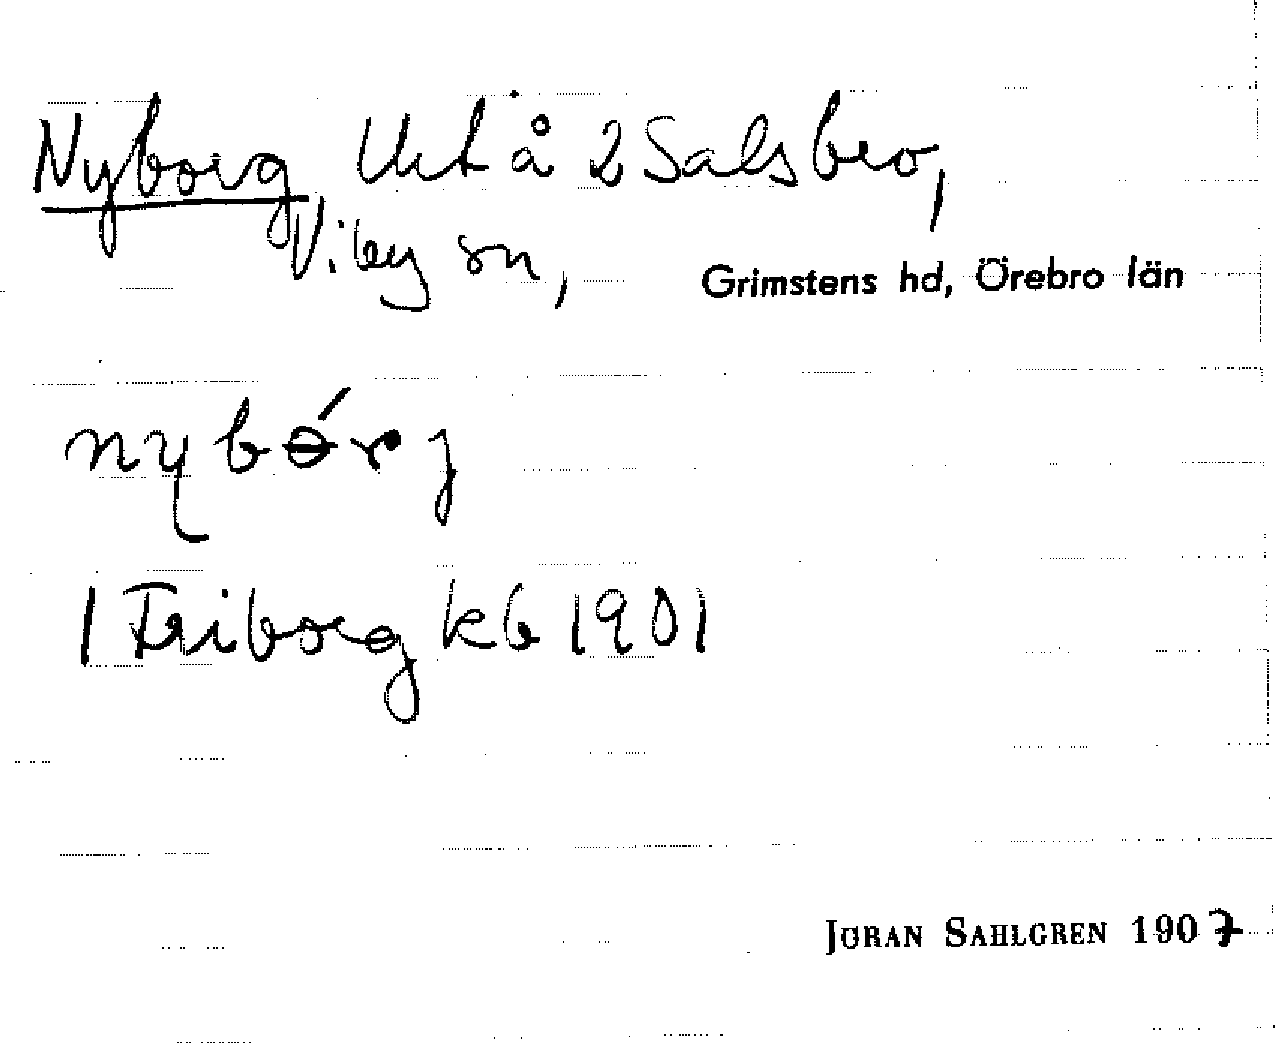 Nyborg, Uet å 2 Salsbro,
Viby sn,
Grimstens hd, Örebro län
nybǿrj
1 Friborg kb 1901
JÖRAN SAHLGREN 1907